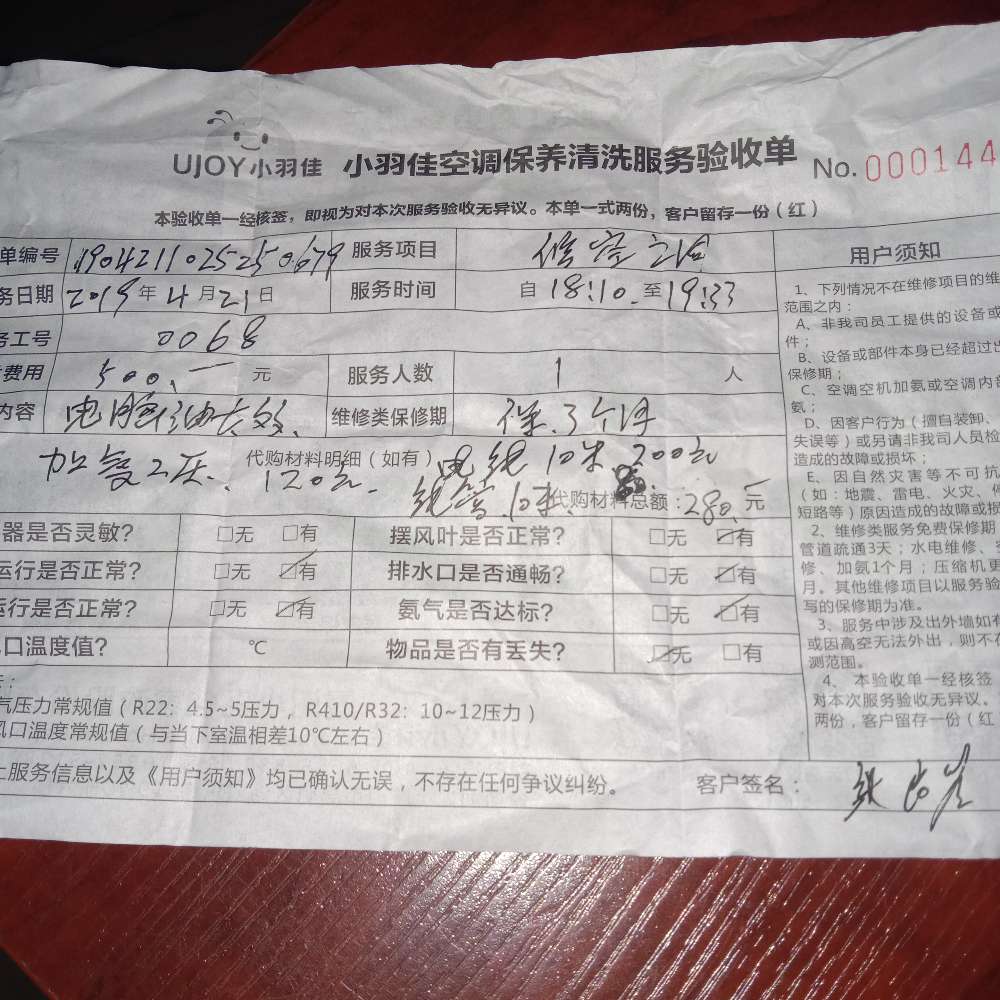 UJOY小羽佳 小羽佳空调保养清洗服务验收单 No. 000144
本验收单一经核签，即视为对本次服务验收无异议。本单一式两份，客户留存一份（红）
单编号 服务项目
务日期 2019 年 4 月 21 日 服务时间 自 18:10 至 19:33
务工号 0068
费用 500.一 元 服务人数 1 人
内容 维修类保修期 保 3个月
代购材料明细（如有） 电线 10米 200元
120元 10米 代购材料总额：280.一 元
器是否灵敏? □无 □有 摆风叶是否正常? □无 ☑有
运行是否正常? □无 ☑有 排水口是否通畅? □无 ☑有
运行是否正常? □无 ☑有 氨气是否达标? □无 ☑有
口温度值? ℃ 物品是否有丢失? ☑无 □有
气压力常规值（R22: 4.5~5压力，R410/R32: 10~12压力）
风口温度常规值（与当下室温相差10℃左右）
上服务信息以及《用户须知》均已确认无误，不存在任何争议纠纷。 客户签名：
用户须知
1、下列情况不在维修项目的维
范围之内：
A、非我司员工提供的设备或
件；
B、设备或部件本身已经超过出
保修期；
C、空调空机加氨或空调内
氨；
D、因客户行为（擅自装卸、
失误等）或另请非我司人员检
造成的故障或损坏；
E、因自然灾害等不可抗
（如：地震、雷电、火灾、
短路等）原因造成的故障或损
2、维修类服务免费保修期
管道疏通3天；水电维修、
修、加氨1个月；压缩机更
月。其他维修项目以服务验
写的保修期为准。
3、服务中涉及出外墙如有
或因高空无法外出，则不在
测范围。
4、本验收单一经核签
对本次服务验收无异议。
两份，客户留存一份（红